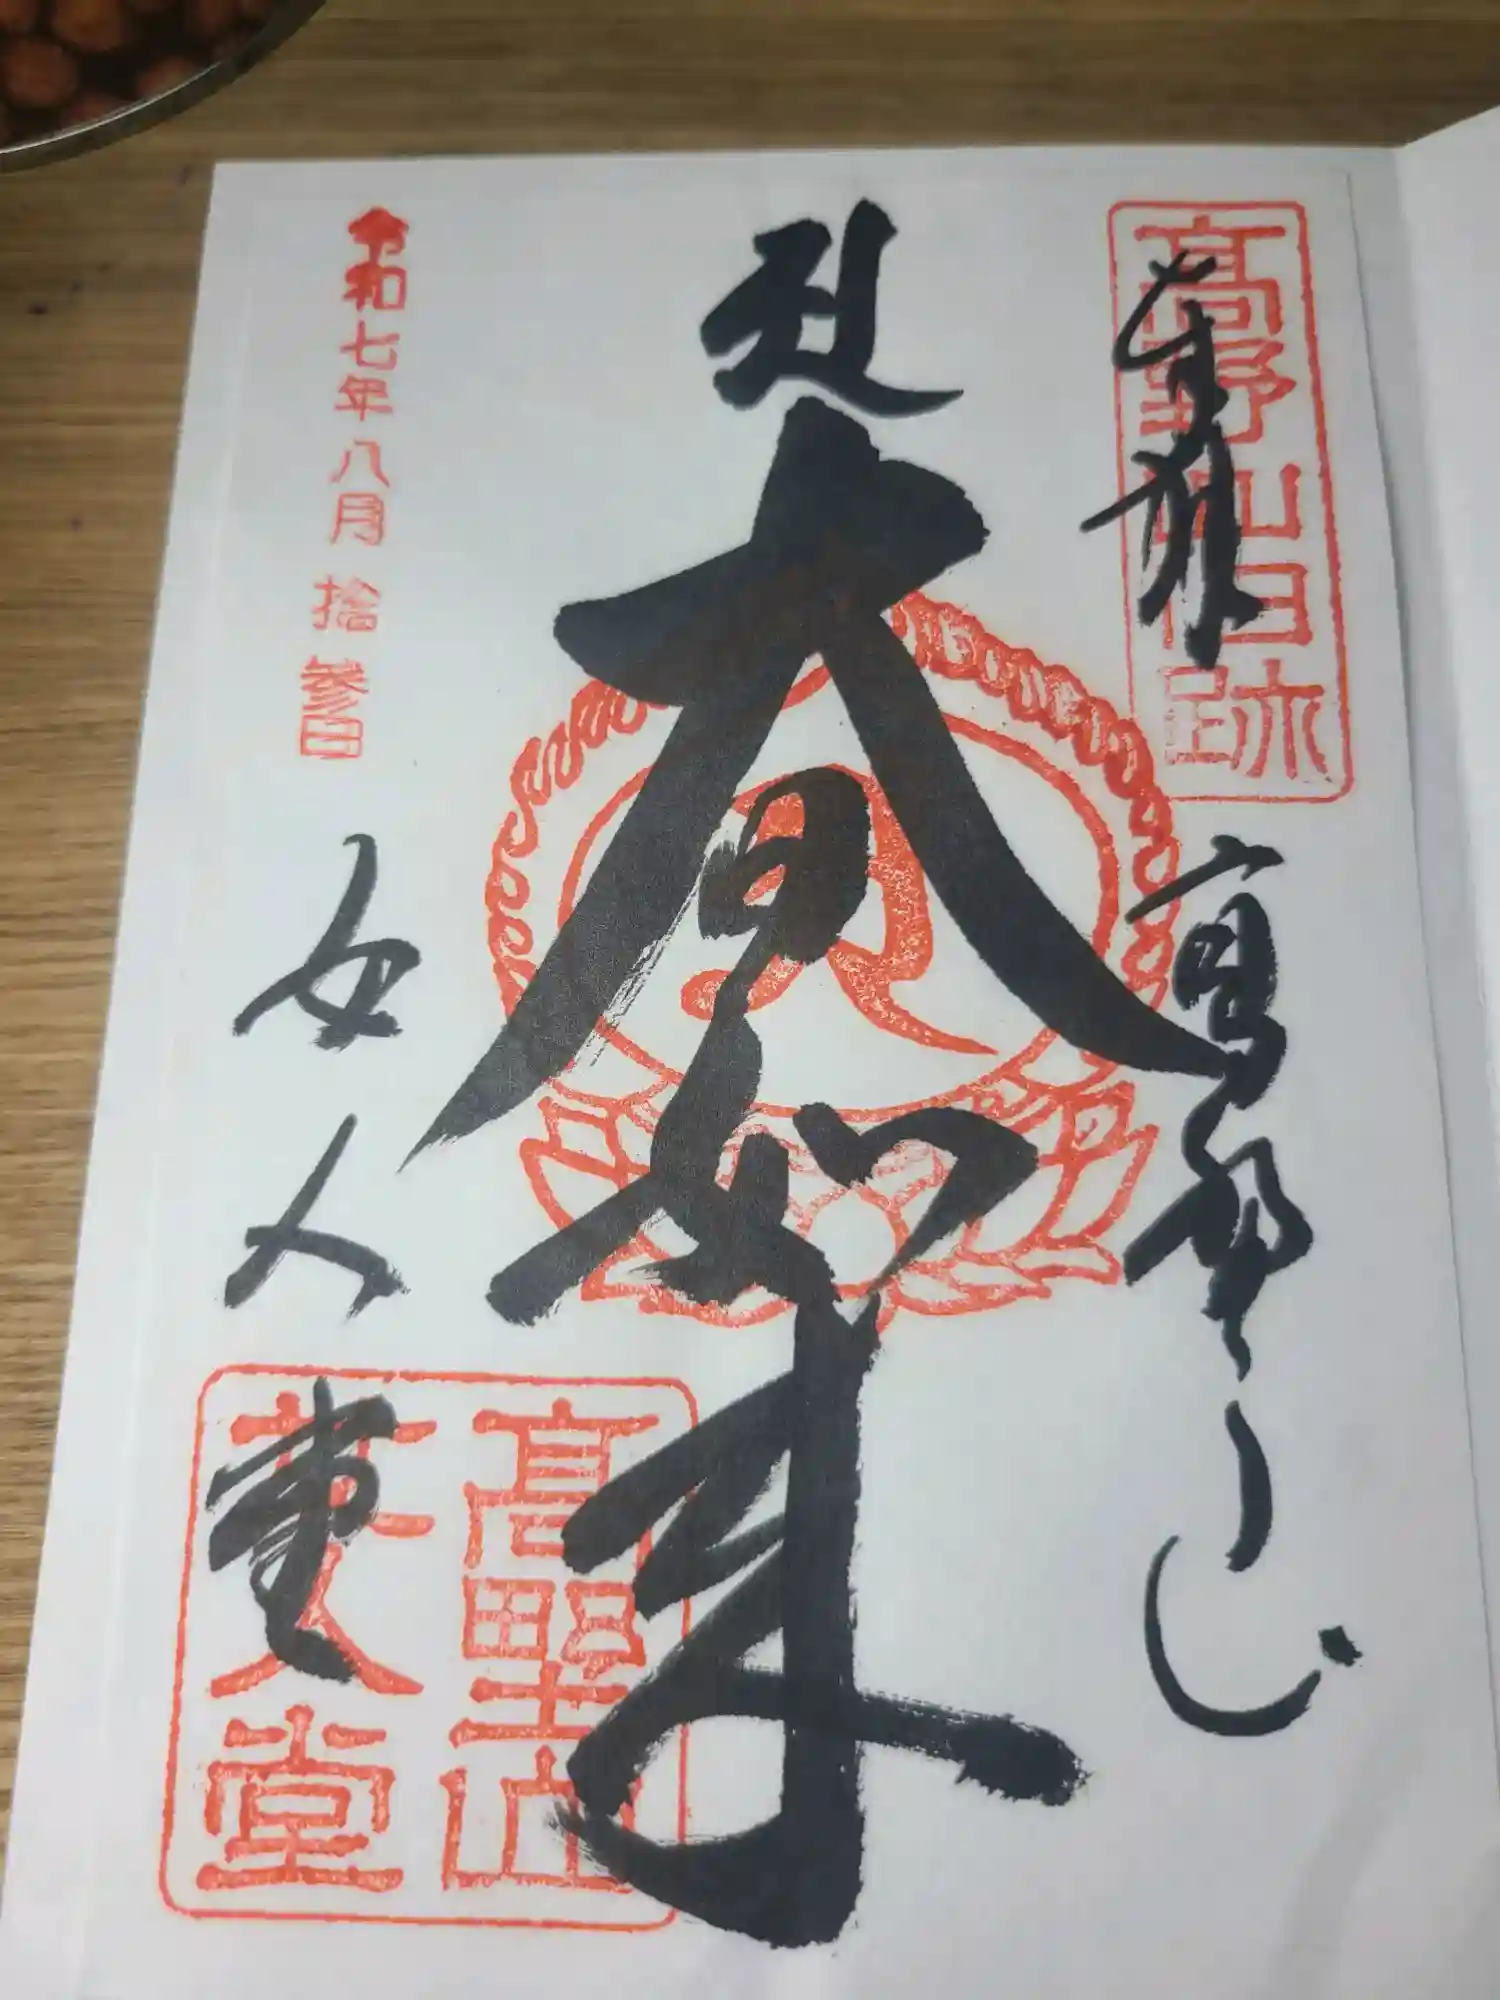 高野山旧跡
奉拝
高野山
大日如来
令和七年八月拾参日
女人堂
高野山
女人堂